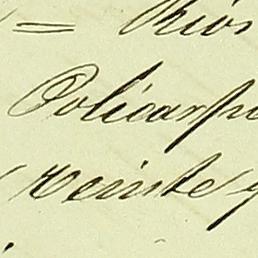 = Rios
Policarpo
veinte y